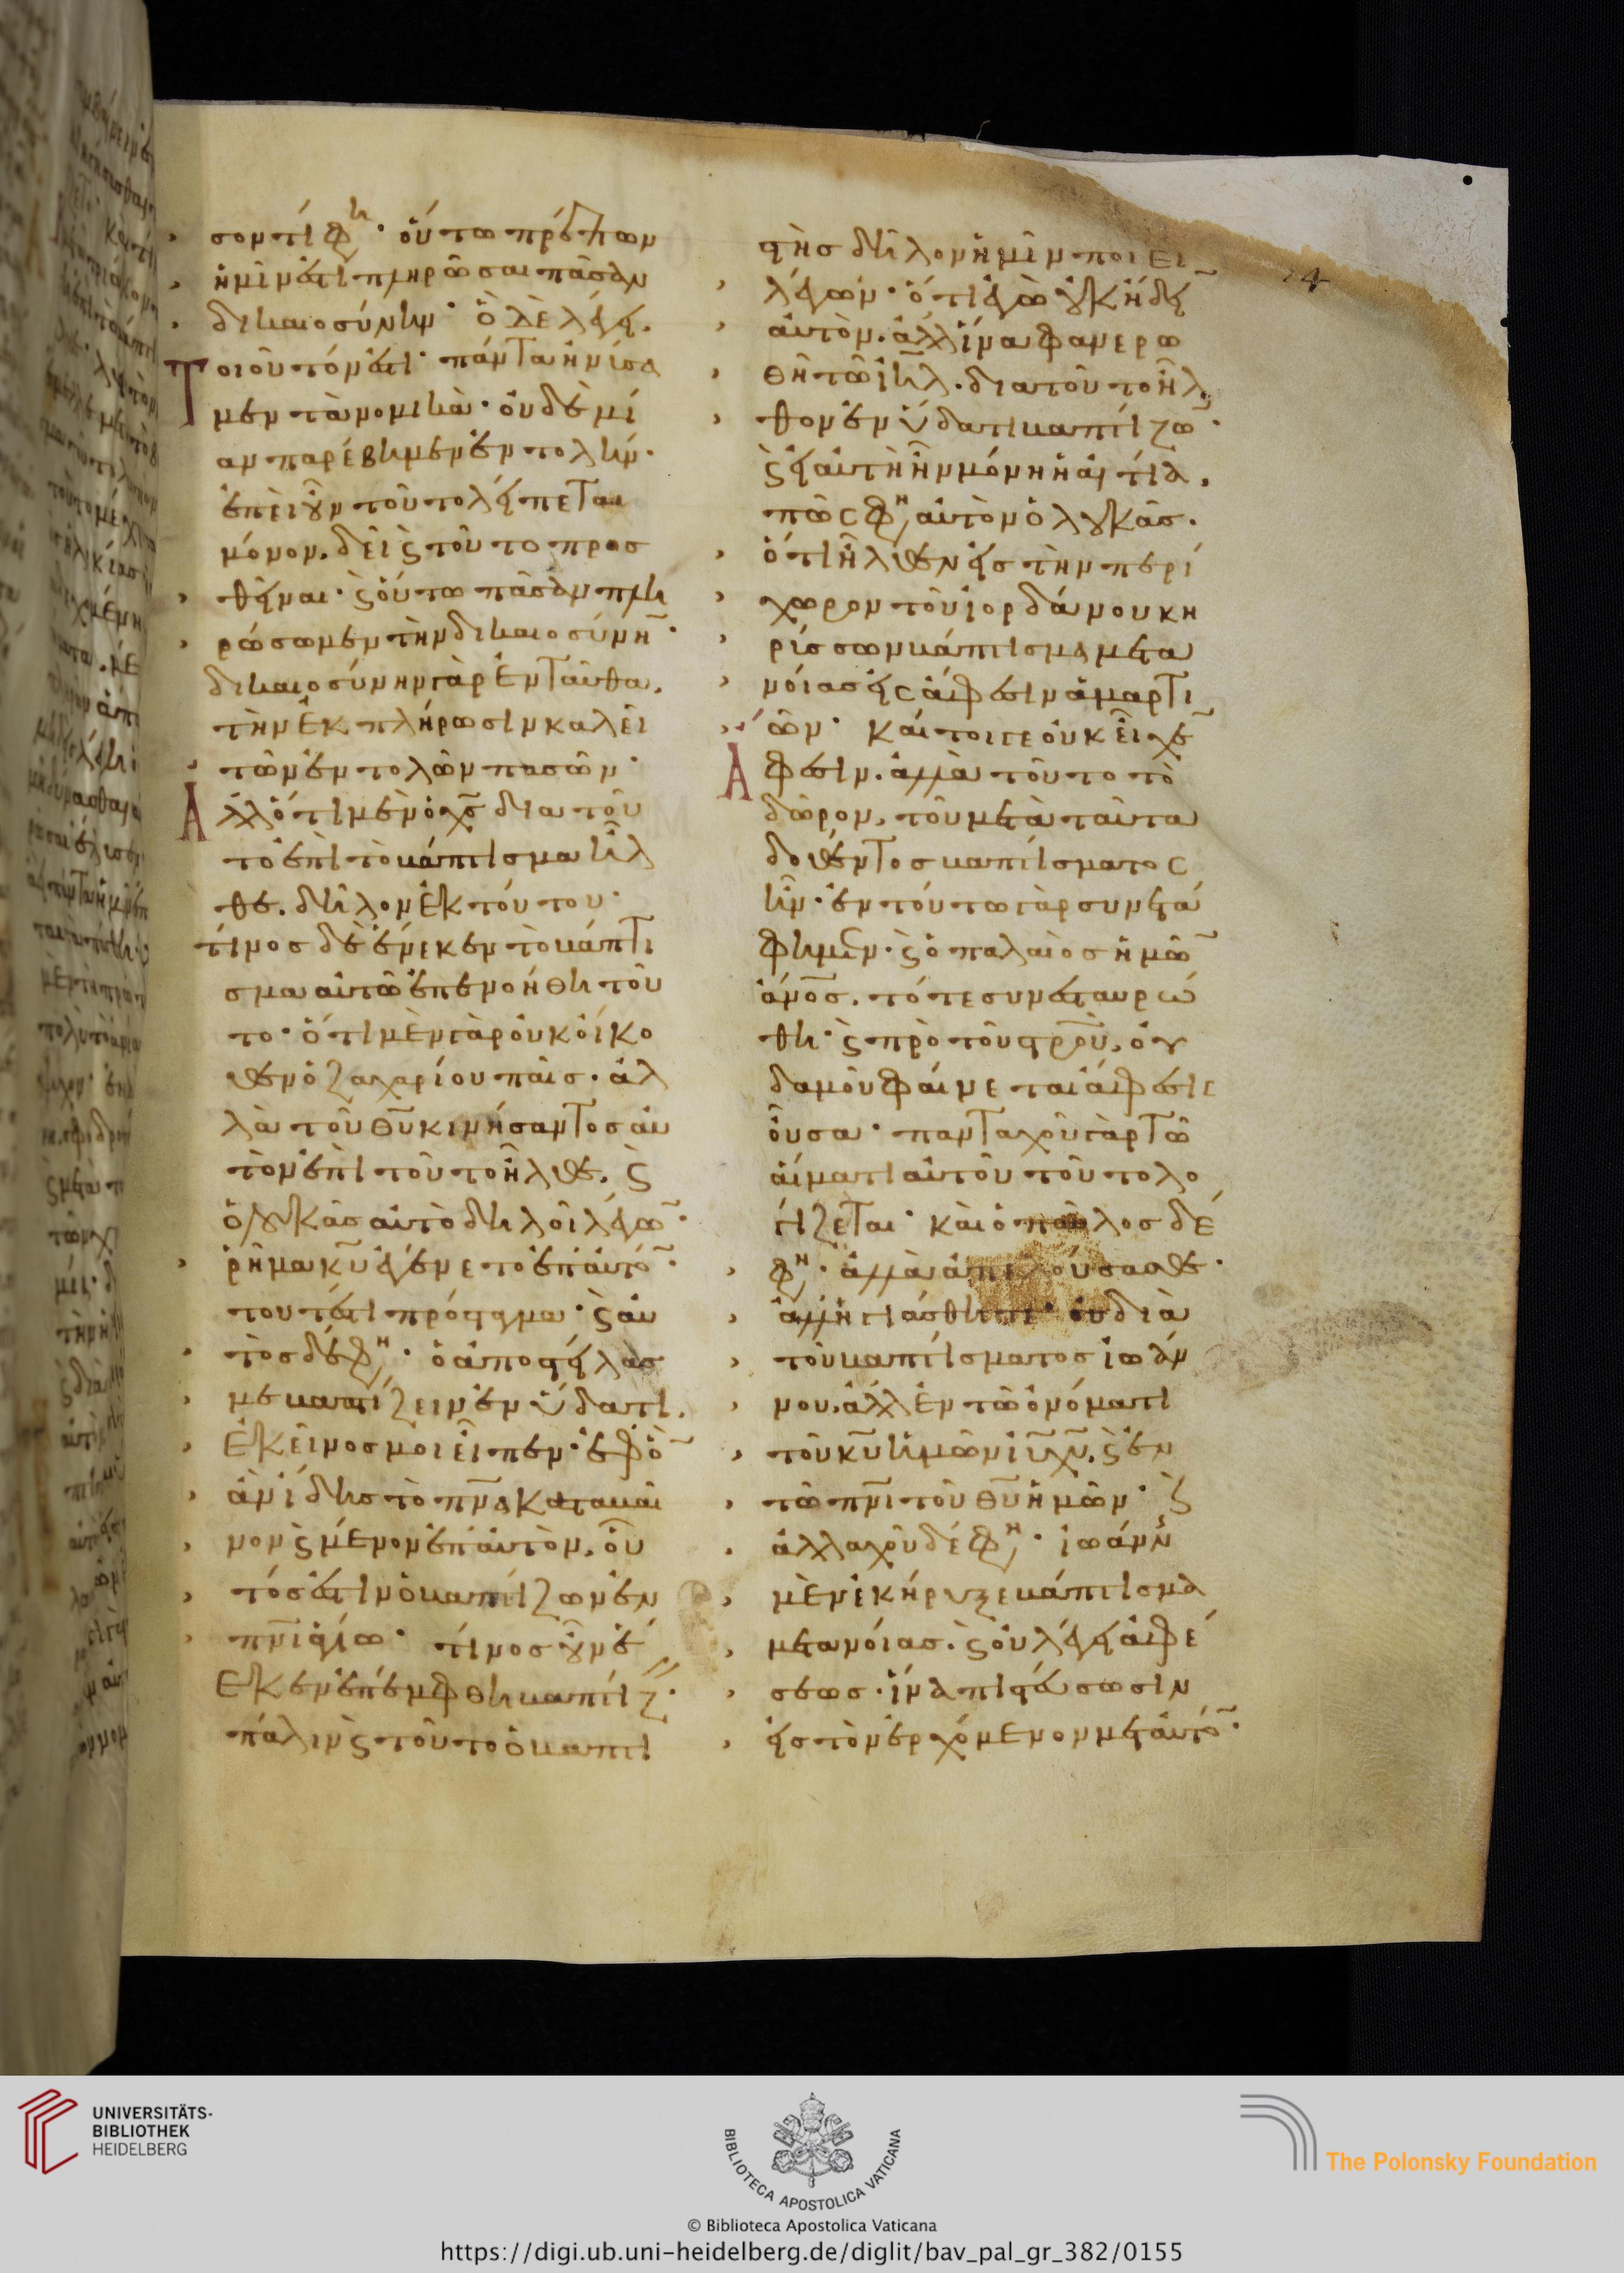 σον τί φη· οὕτω πρέπον
ἡμῖν ἐστὶ πληρῶσαι πᾶσαν
δικαιοσύνην· ὃ δὲ λέγει.
Τοιοῦτόν ἐστι· πάντα ἠνύσα
μεν τὰ νομικὰ· οὐδὲ μί
αν παρέβημεν ἐντολήν·
ἐπεὶ οὖν τοῦτο λείπεται
μόνον. δεῖ ϛ τοῦτο προσ
θεῖναι· ϛ οὕτω πᾶσαν πλη
ρώσωμεν τὴν δικαιοσύνη̅·
δικαιοσύνην γὰρ ἐνταῦθα,
τὴν ἐκπλήρωσιν καλεῖ
τῶν ἐντολῶν πασῶν·
Ἀλλ ὅτι μὲν ὁ χ̅ς̅ διὰ τοῦ
το ἐπὶ τὸ βάπτισμα ἦλ
θε. δῆλον ἐκ τούτου·
τίνος δὲ ἕνεκεν τὸ βάπτι
σμα αὐτῶ ἐπενοήθη τοῦ
το· ὅτι μὲν γὰρ οὐκ οἴκο
θεν ὁ ζαχαρίου παῖς. ἀλ
λὰ τοῦ θ̅υ̅ κινήσαντος αὐ
τὸν ἐπὶ τοῦτο ἦλθε. ϛ
ὁ λουκᾶς αὐτὸ δηλοῖ λέγω̅·
ῥῆμα κ̅υ̅ ἐγένετο ἐπ αὐτό̅·
τουτέστι πρόσταγμα· ϛ αὐ
τὸς δέ φη· ὁ ἀποστείλας
με βαπτίζειν ἐν ὕδατι.
ἐκεῖνος μοι εἶπεν· ἐφ ὃ̅
ἂν ἴδης τὸ π̅ν̅α̅ καταβαῖ
νον ϛ μένον ἐπ αὐτὸν, οὗ
τός ἐστιν ὁ βαπτίζων ἐν
π̅ν̅ι̅ ἁγίω· τίνος οὖν ἕ
νεκεν ἐπέμφθη βαπτίζ·
πάλιν ϛ τοῦτο ὁ βαπτι
στὴς δῆλον ἡμῖν ποιεῖ
λέγων· ὅτι ἐγὼ οὐκ ἤδει̅
αὐτὸν. ἀλλ ἵνα φανερω
θῆ τῶ ι̅η̅λ̅. διὰ τοῦτο ἦλ
θον ἐν ὕδατι βαπτίζω̅·
ϛ εἰ αὕτη ἦν μόνη ἡ αἰτία.
πῶς φη αὐτὸν ὁ λουκᾶς.
ὅτι ἦλθεν εἰς τὴν περί
χωρον τοῦ ἰορδάνου κη
ρύσσων βάπτισμα μετα
νοίας εἰς ἄφεσιν ἁμαρτι
ῶν· καίτοιγε οὐκ εἶχε̅
Ἄφεσιν. ἀλλὰ τοῦτο τὸ
δῶρον, τοῦ μετὰ ταῦτα
δοθέντος βαπτίσματος
ἦν· ἐν τούτω γὰρ συνετά
φημεν· ϛ ὁ παλαιὸς ἡμῶ̅
ἄ̅ν̅ο̅ς̅. τότε συνεσταυρώ
θη· ϛ πρὸ τοῦ σ̅ρ̅ο̅ῦ̅, οὐ
δαμοῦ φαίνεται ἄφεσις
οὖσα· πανταχοῦ γὰρ τῶ
αἵματι αὐτοῦ τοῦτο λο
γίζεται· καὶ ὁ παῦλος δέ
φη· ἀλλὰ ἀπελούσασθε·
ἀλλ ἡγιάσθητε· οὐ διὰ
τοῦ βαπτίσματος ἰωάν
νου. ἀλλ ἐν τῶ ὀνόματι
τοῦ κ̅υ̅ ἡμῶν ἰ̅υ̅ χ̅υ̅. ϛ ἐν
τῶ π̅ν̅ι̅ τοῦ θ̅υ̅ ἡμῶν· ϛ
ἀλλαχοῦ δέ φη· ἰωάννης
μὲν ἐκήρυξε βάπτισμα
μετανοίας. ϛ οὐ λέγει ἀφέ
σεως. ἵνα πιστεύσωσιν
εἰς τὸν ἐρχόμενον μετ αὐτό̅·
14
UNIVERSITÄTS-
BIBLIOTHEK
HEIDELBERG
BIBLIOTECA APOSTOLICA VATICANA
© Biblioteca Apostolica Vaticana
The Polonsky Foundation
https://digi.ub.uni-heidelberg.de/diglit/bav_pal_gr_382/0155